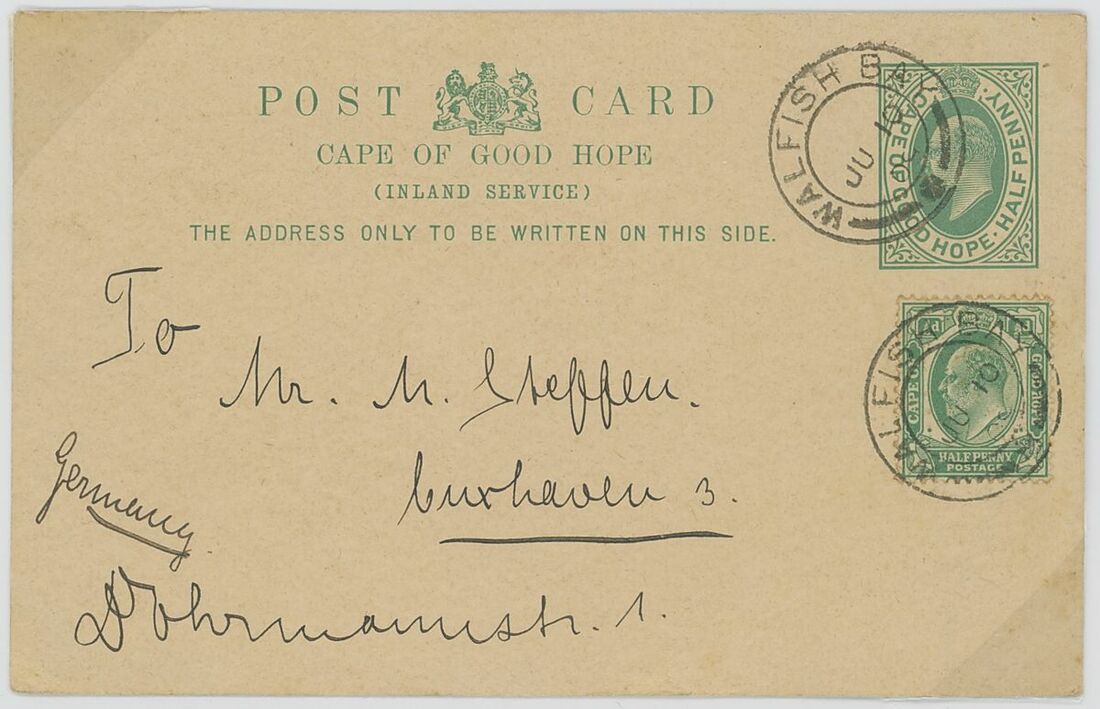 POST CARD
CAPE OF GOOD HOPE
(INLAND SERVICE)
THE ADDRESS ONLY TO BE WRITTEN ON THIS SIDE.
WALFISH BAY
JU 10
CAPE OF GOOD HOPE. HALF PENNY.
To
Mr. M. Steffen.
Cuxhaven 3.
Germany
Dohrmannstr. 1.
WALFISH BAY
JU 10
½d ½d
CAPE OF GOOD HOPE
HALF PENNY
POSTAGE